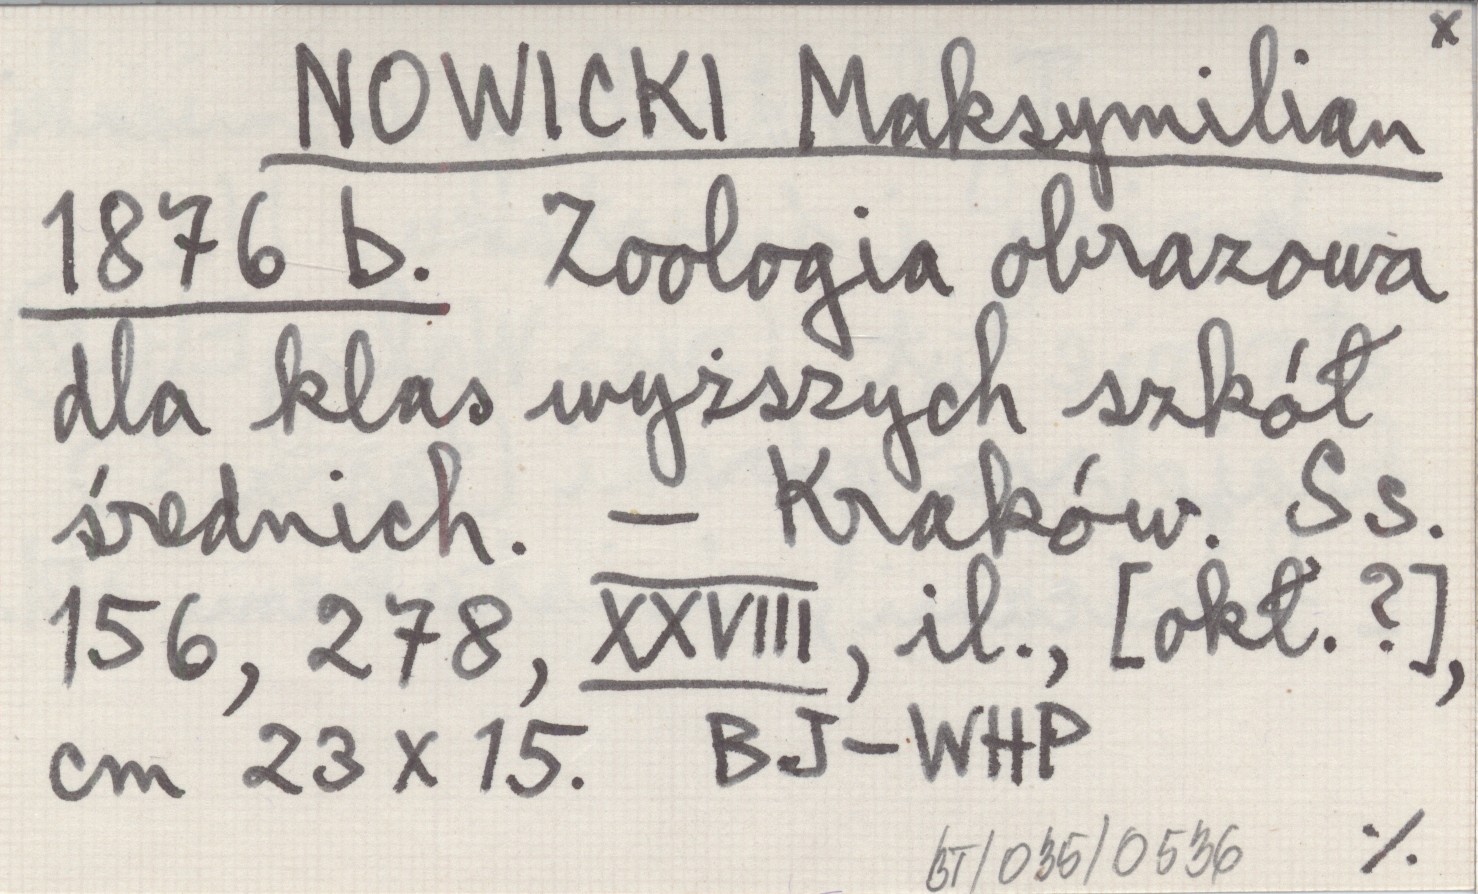 x
NOWICKI Maksymilian
1876 b. Zoologia obrazowa
dla klas wyższych szkół
średnich. — Kraków. Ss.
156, 278, XXVIII, il., [okł. ?],
cm 23 x 15. BJ-WHP
BT/035/0536 ./.